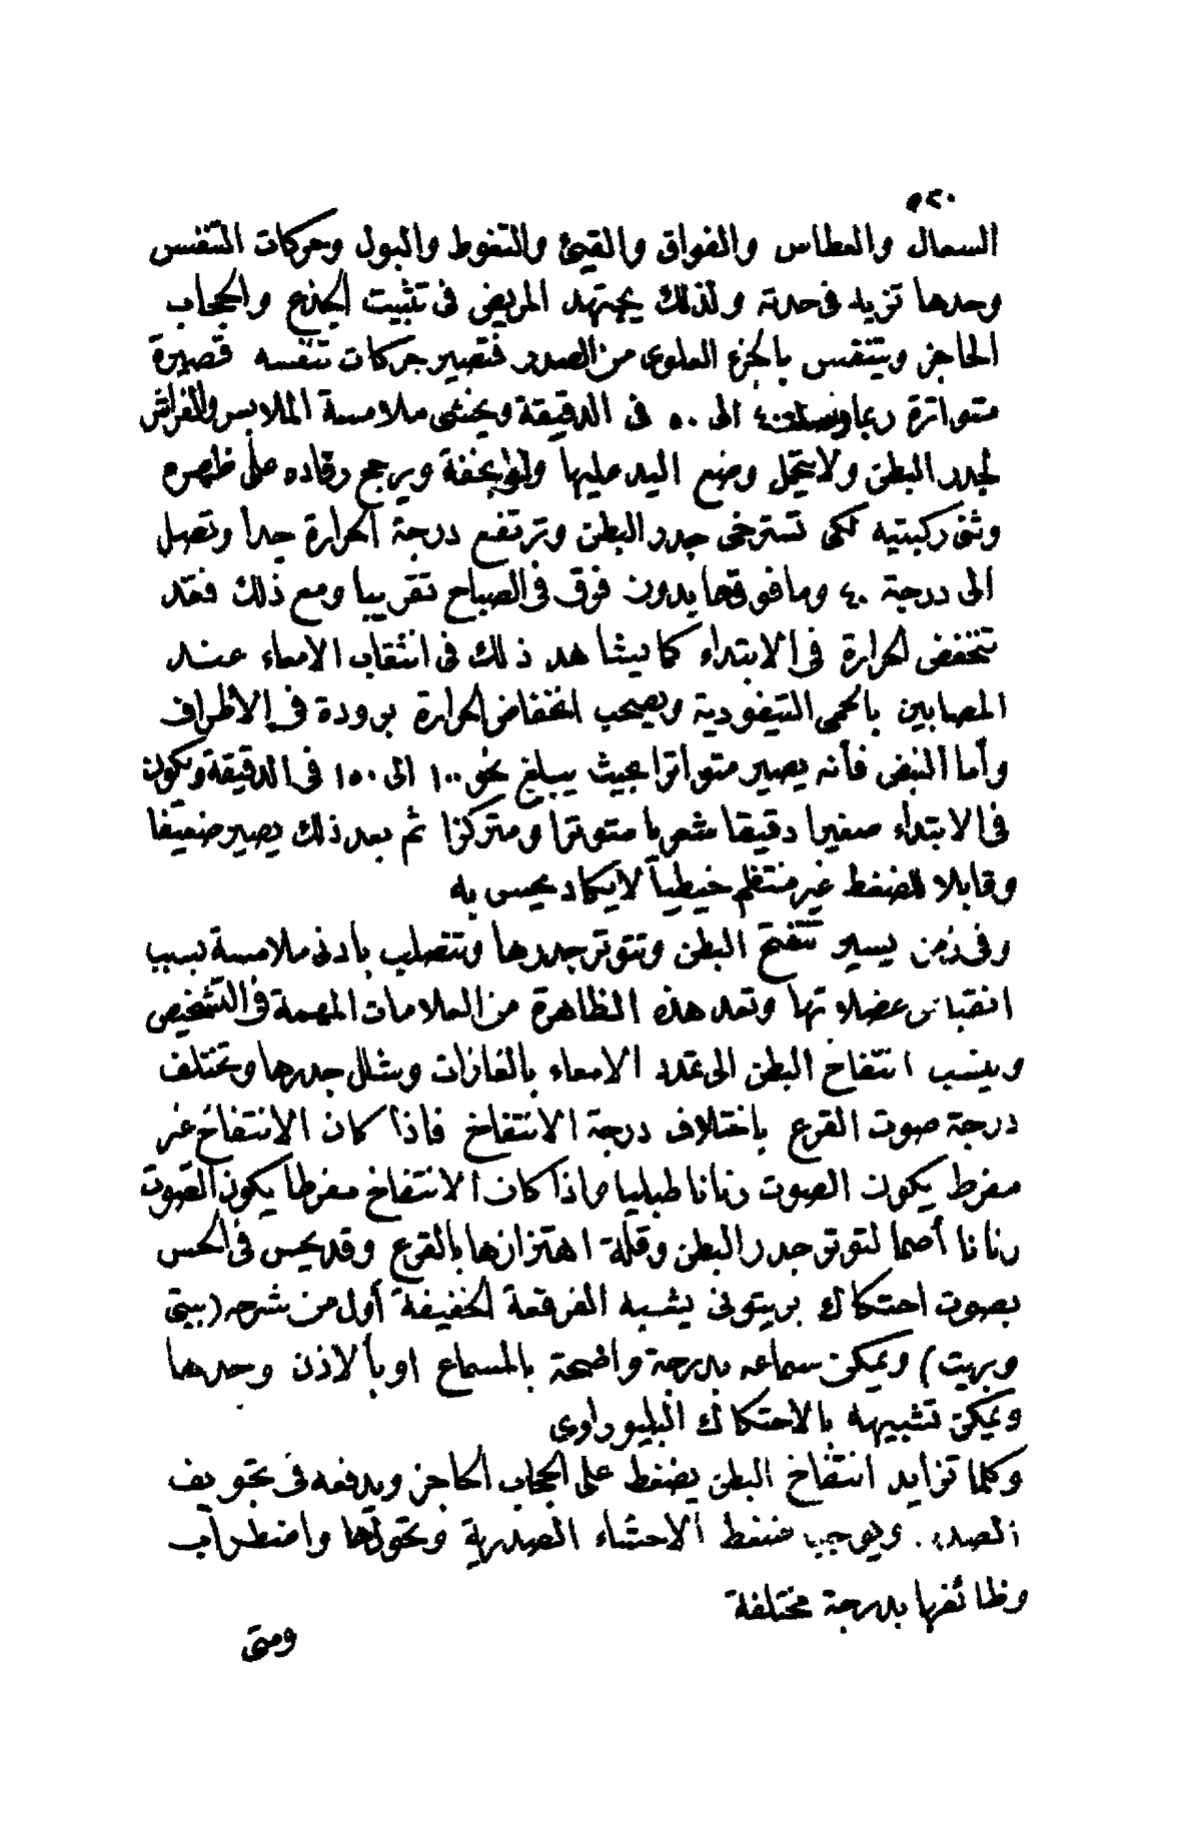 ٥٢٠
السعال والعطاس والفواق والقيئ والتغوط والبول وحركات التنفس
وحدها تزيد فى حدته ولذلك يجتهد المريض فى تثبيت الجذع والحجاب
الحاجز ويتنفس بالجزء العلوى من الصدر فتصير حركات تنفسه قصيرة
متواترة ربما وصلت ٤٠ الى ٥٠ فى الدقيقة ويخشى ملامسة الملابس والفراش
لجدر البطن ولا يتحمل وضع اليد عليها ولو بخفة ويرجح رقاده على ظهره
وثنى ركبتيه لكى تسترخى جدر البطن وترتفع درجة الحرارة جدا وتصل
الى درجة ٤٠ وما فوقها بدون فرق فى الصباح تقريبا ومع ذلك فقد
تنخفض الحرارة فى الابتداء كما يشاهد ذلك فى انثقاب الامعاء عند
المصابين بالحمى التيفودية ويصحب انخفاض الحرارة برودة فى الأطراف
وأما النبض فأنه يصير متواترا بحيث يبلغ نحو ١٠٠ الى ١٥٠ فى الدقيقة ويكون
فى الابتداء صغيرا دقيقا شعريا متوترا ومتركزا ثم بعد ذلك يصير ضعيفا
وقابلا للضغط غير منتظم خيطيا لا يكاد يحس به
وفى زمن يسير تنتفخ البطن وتتوتر جدرها وتتصلب بأدنى ملامسة بسبب
انقباض عضلاتها وتعد هذه الظاهرة من العلامات المهمة فى التشخيص
وينسب انتفاخ البطن الى تمدد الامعاء بالغازات وشلل جدرها وتختلف
درجة صوت القرع باختلاف درجة الانتفاخ فاذا كان الانتفاخ غير
مفرط يكون الصوت رنانا طبليا واذا كان الانتفاخ مفرطا يكون الصوت
رنانا أصما لتوتر جدر البطن وقلة اهتزازها بالقرع وقد يحس فى الحس
بصوت احتكاك بريتونى يشبه الفرقعة الخفيفة أول من شرحه (بيتى
وبريت) ويمكن سماعه بدرجة واضحة بالمسماع او بألاذن وحدها
ويمكن تشبيهه بالاحتكاك البليوراوى
وكلما تزايد انتفاخ البطن يضغط على الحجاب الحاجز ويدفعه فى تجويف
الصدر. ويوجب ضغط الاحشاء الصدرية وتحولها واضطراب
وظائفها بدرجة مختلفة
ومتى